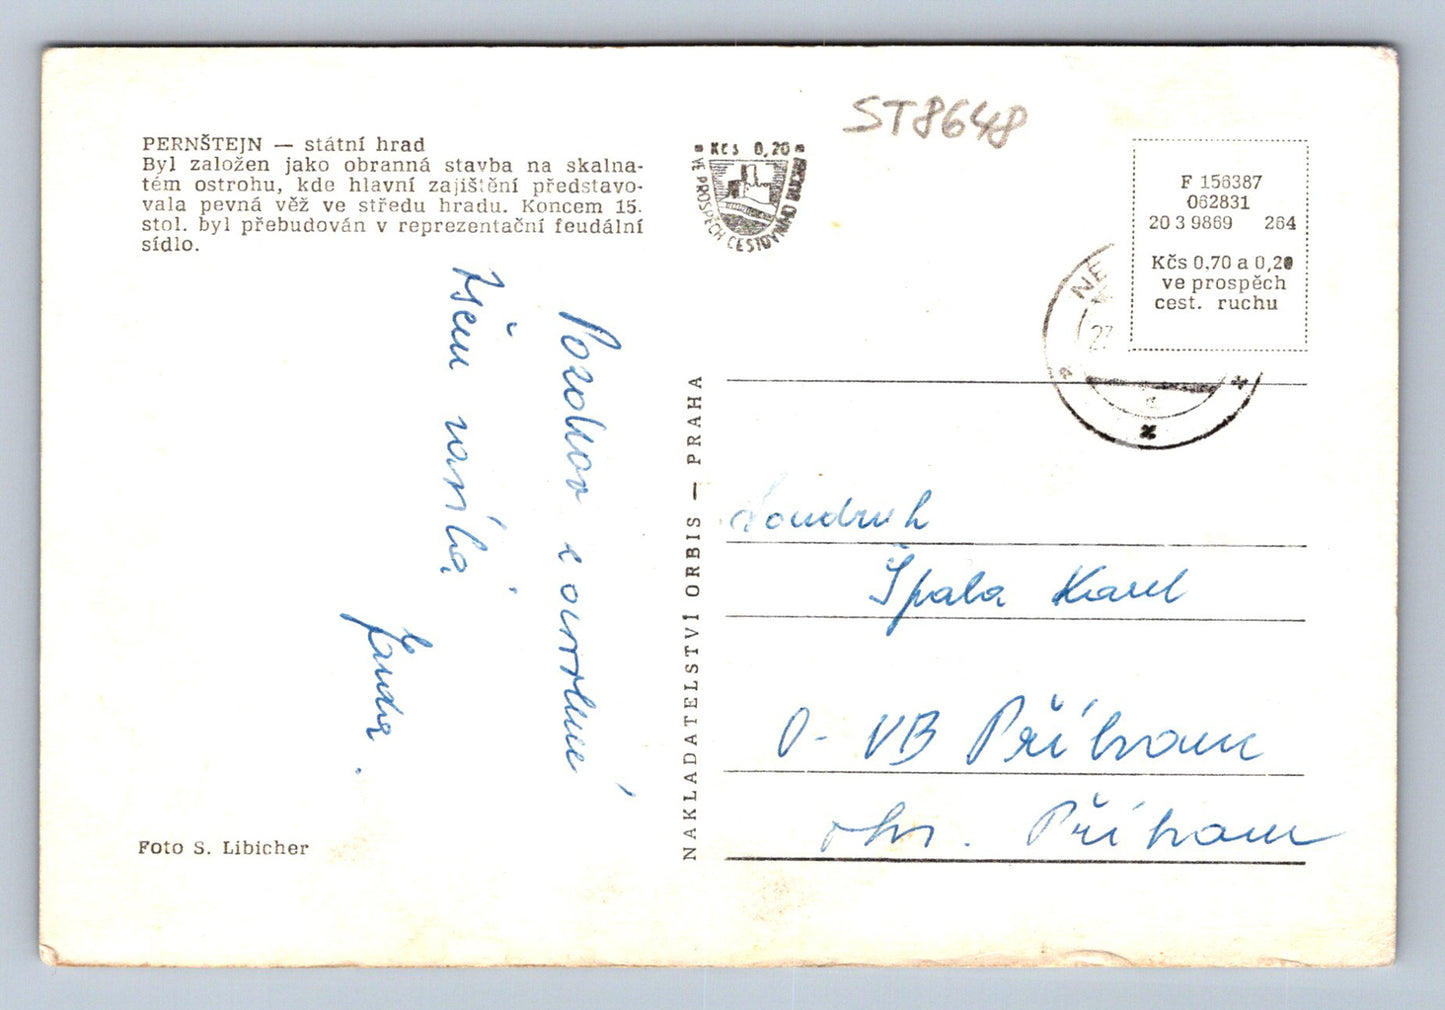 PERNŠTEJN — státní hrad
Byl založen jako obranná stavba na skalna-
tém ostrohu, kde hlavní zajištění představo-
vala pevná věž ve středu hradu. Koncem 15.
stol. byl přebudován v reprezentační feudální
sídlo.
Pozdrav
všem
Foto S. Libicher
NAKLADATELSTVÍ ORBIS — PRAHA
ST8648
KČS 0,20
VE PROSPĚCH CESTOVNÍHO RUCHU
F 156387
062831
20 3 9869 264
Kčs 0,70 a 0,20
ve prospěch
cest. ruchu
NE
Soudruh
Špala Karel
O-VB Příbram
okr. Příbram